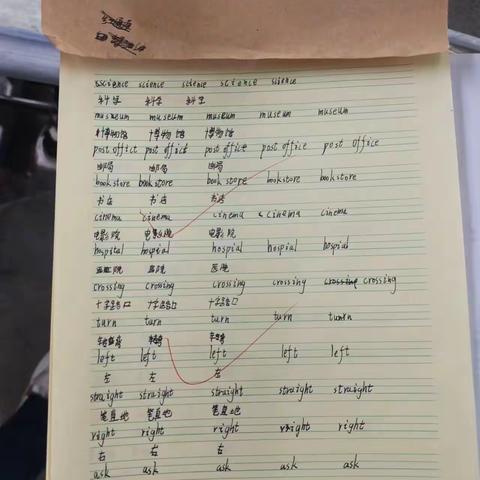 science science science science science
科学 科学
museum museum museum museum museum
博物馆 博物馆 博物馆
post office post office post office post office post office
邮局 邮局 邮局
bookstore bookstore bookstore bookstore bookstore
书店 书店 书店
cinema cinema cinema cinema cinema
电影院 电影院 电影院
hospital hospial hospial hospial hospial
医院 医院
crossing crossing crossing crossing crossing
十字路口 十字路口 十字路口
turn turn turn turn turn
left left left left left
左 左 左
straight straight straight straight straight
笔直地 笔直地 笔直地
right right right right right
右 右 右
ask ask ask ask ask